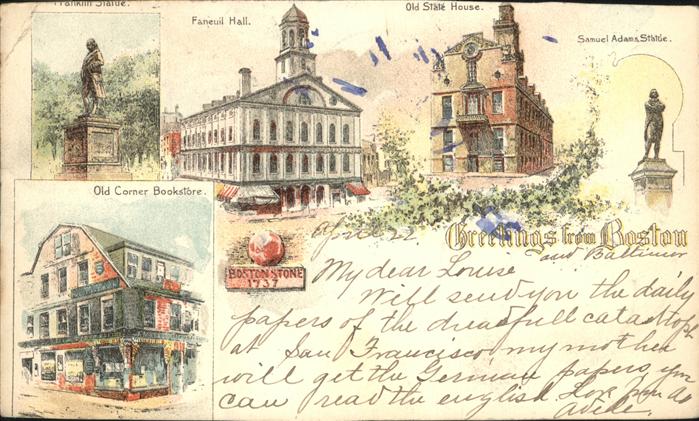 Franklin Statue.
Faneuil Hall.
Old State House.
Samuel Adams Statue.
Old Corner Bookstore.
BOSTON STONE
1737
Greetings from Boston
and Baltimor
April 22
My dear Louise
Will send you the daily
papers of the dreadfull catastoph
at San Francisco, my mother
will get the German papers, you
can read the english. Love
Adele.